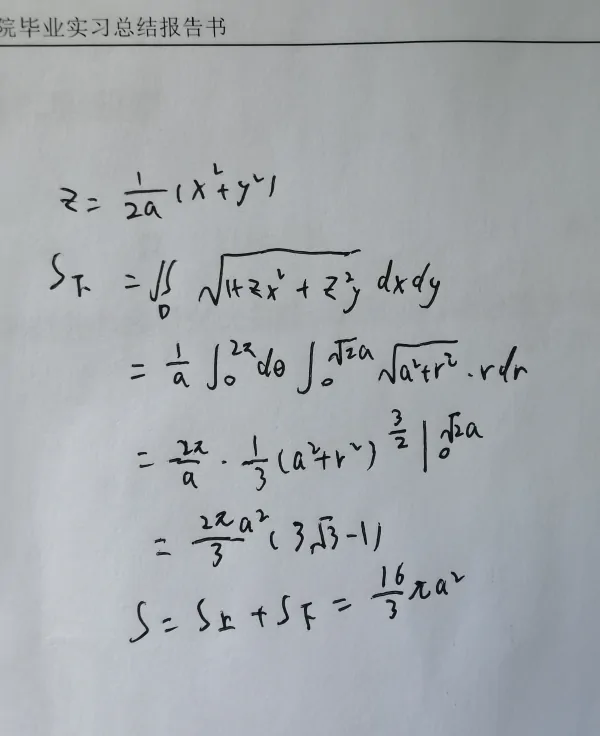 院毕业实习总结报告书
z = \frac{1}{2a} (x^2 + y^2)
S_下 = \iint_D \sqrt{1 + z_x^2 + z_y^2} dxdy
= \frac{1}{a} \int_0^{2\pi} d\theta \int_0^{\sqrt{2}a} \sqrt{a^2 + r^2} \cdot rdr
= \frac{2\pi}{a} \cdot \frac{1}{3} (a^2 + r^2)^{\frac{3}{2}} |_0^{\sqrt{2}a}
= \frac{2\pi a^2}{3} (3\sqrt{3} - 1)
S = S_上 + S_下 = \frac{16}{3} \pi a^2